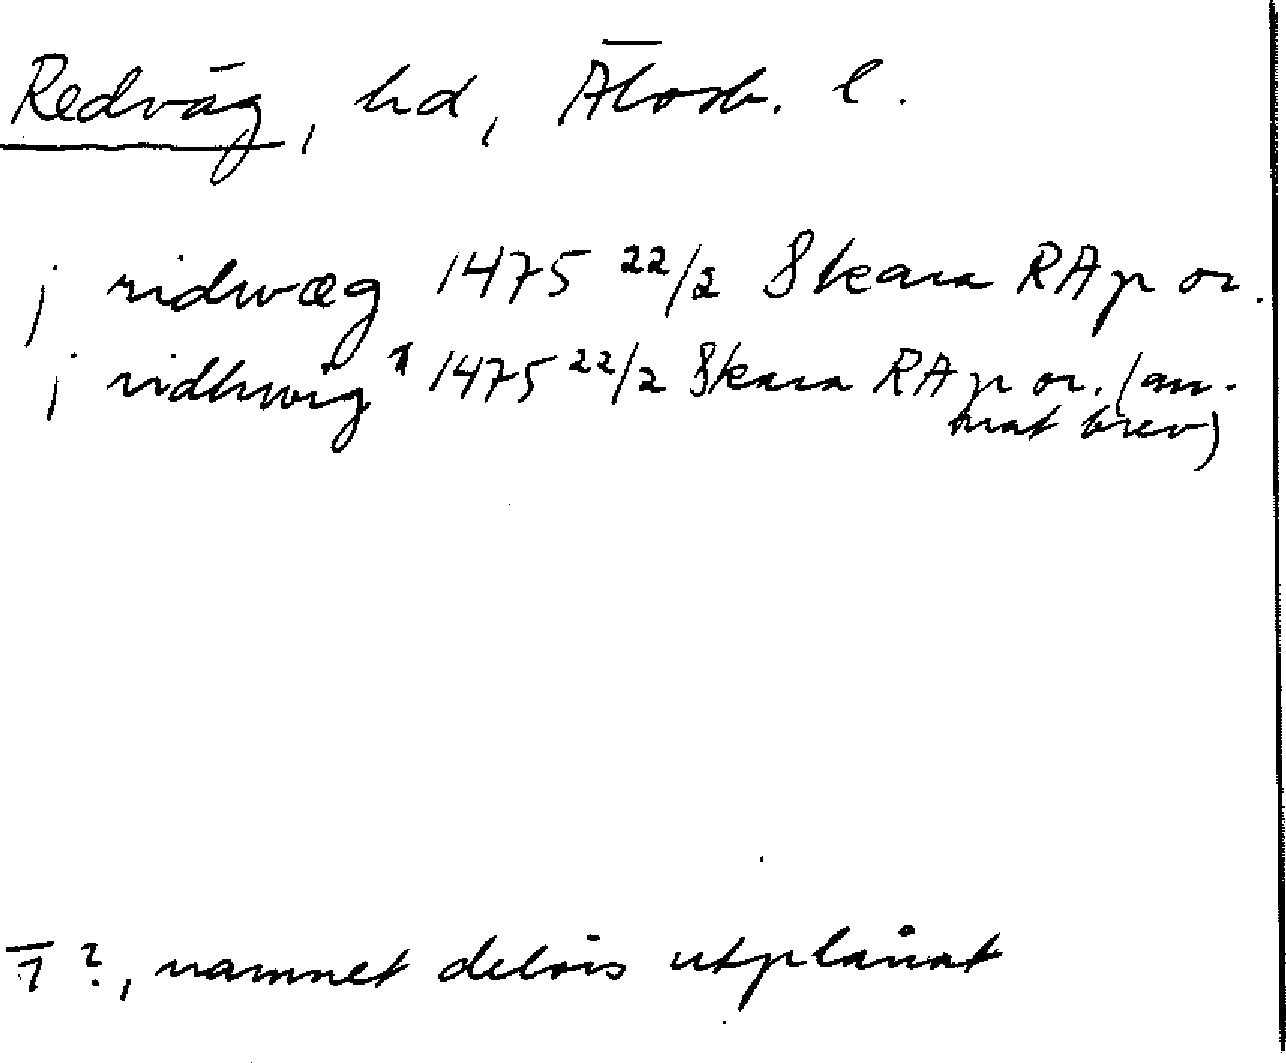 Redväg, hd, Älvsb. l.
j ridwæg 1475 22/2 Skara RAp or.
j ridhwig 1 1475 22/2 Skara RAp or. (an-
nat brev)
1 ?, namnet delvis utplånat